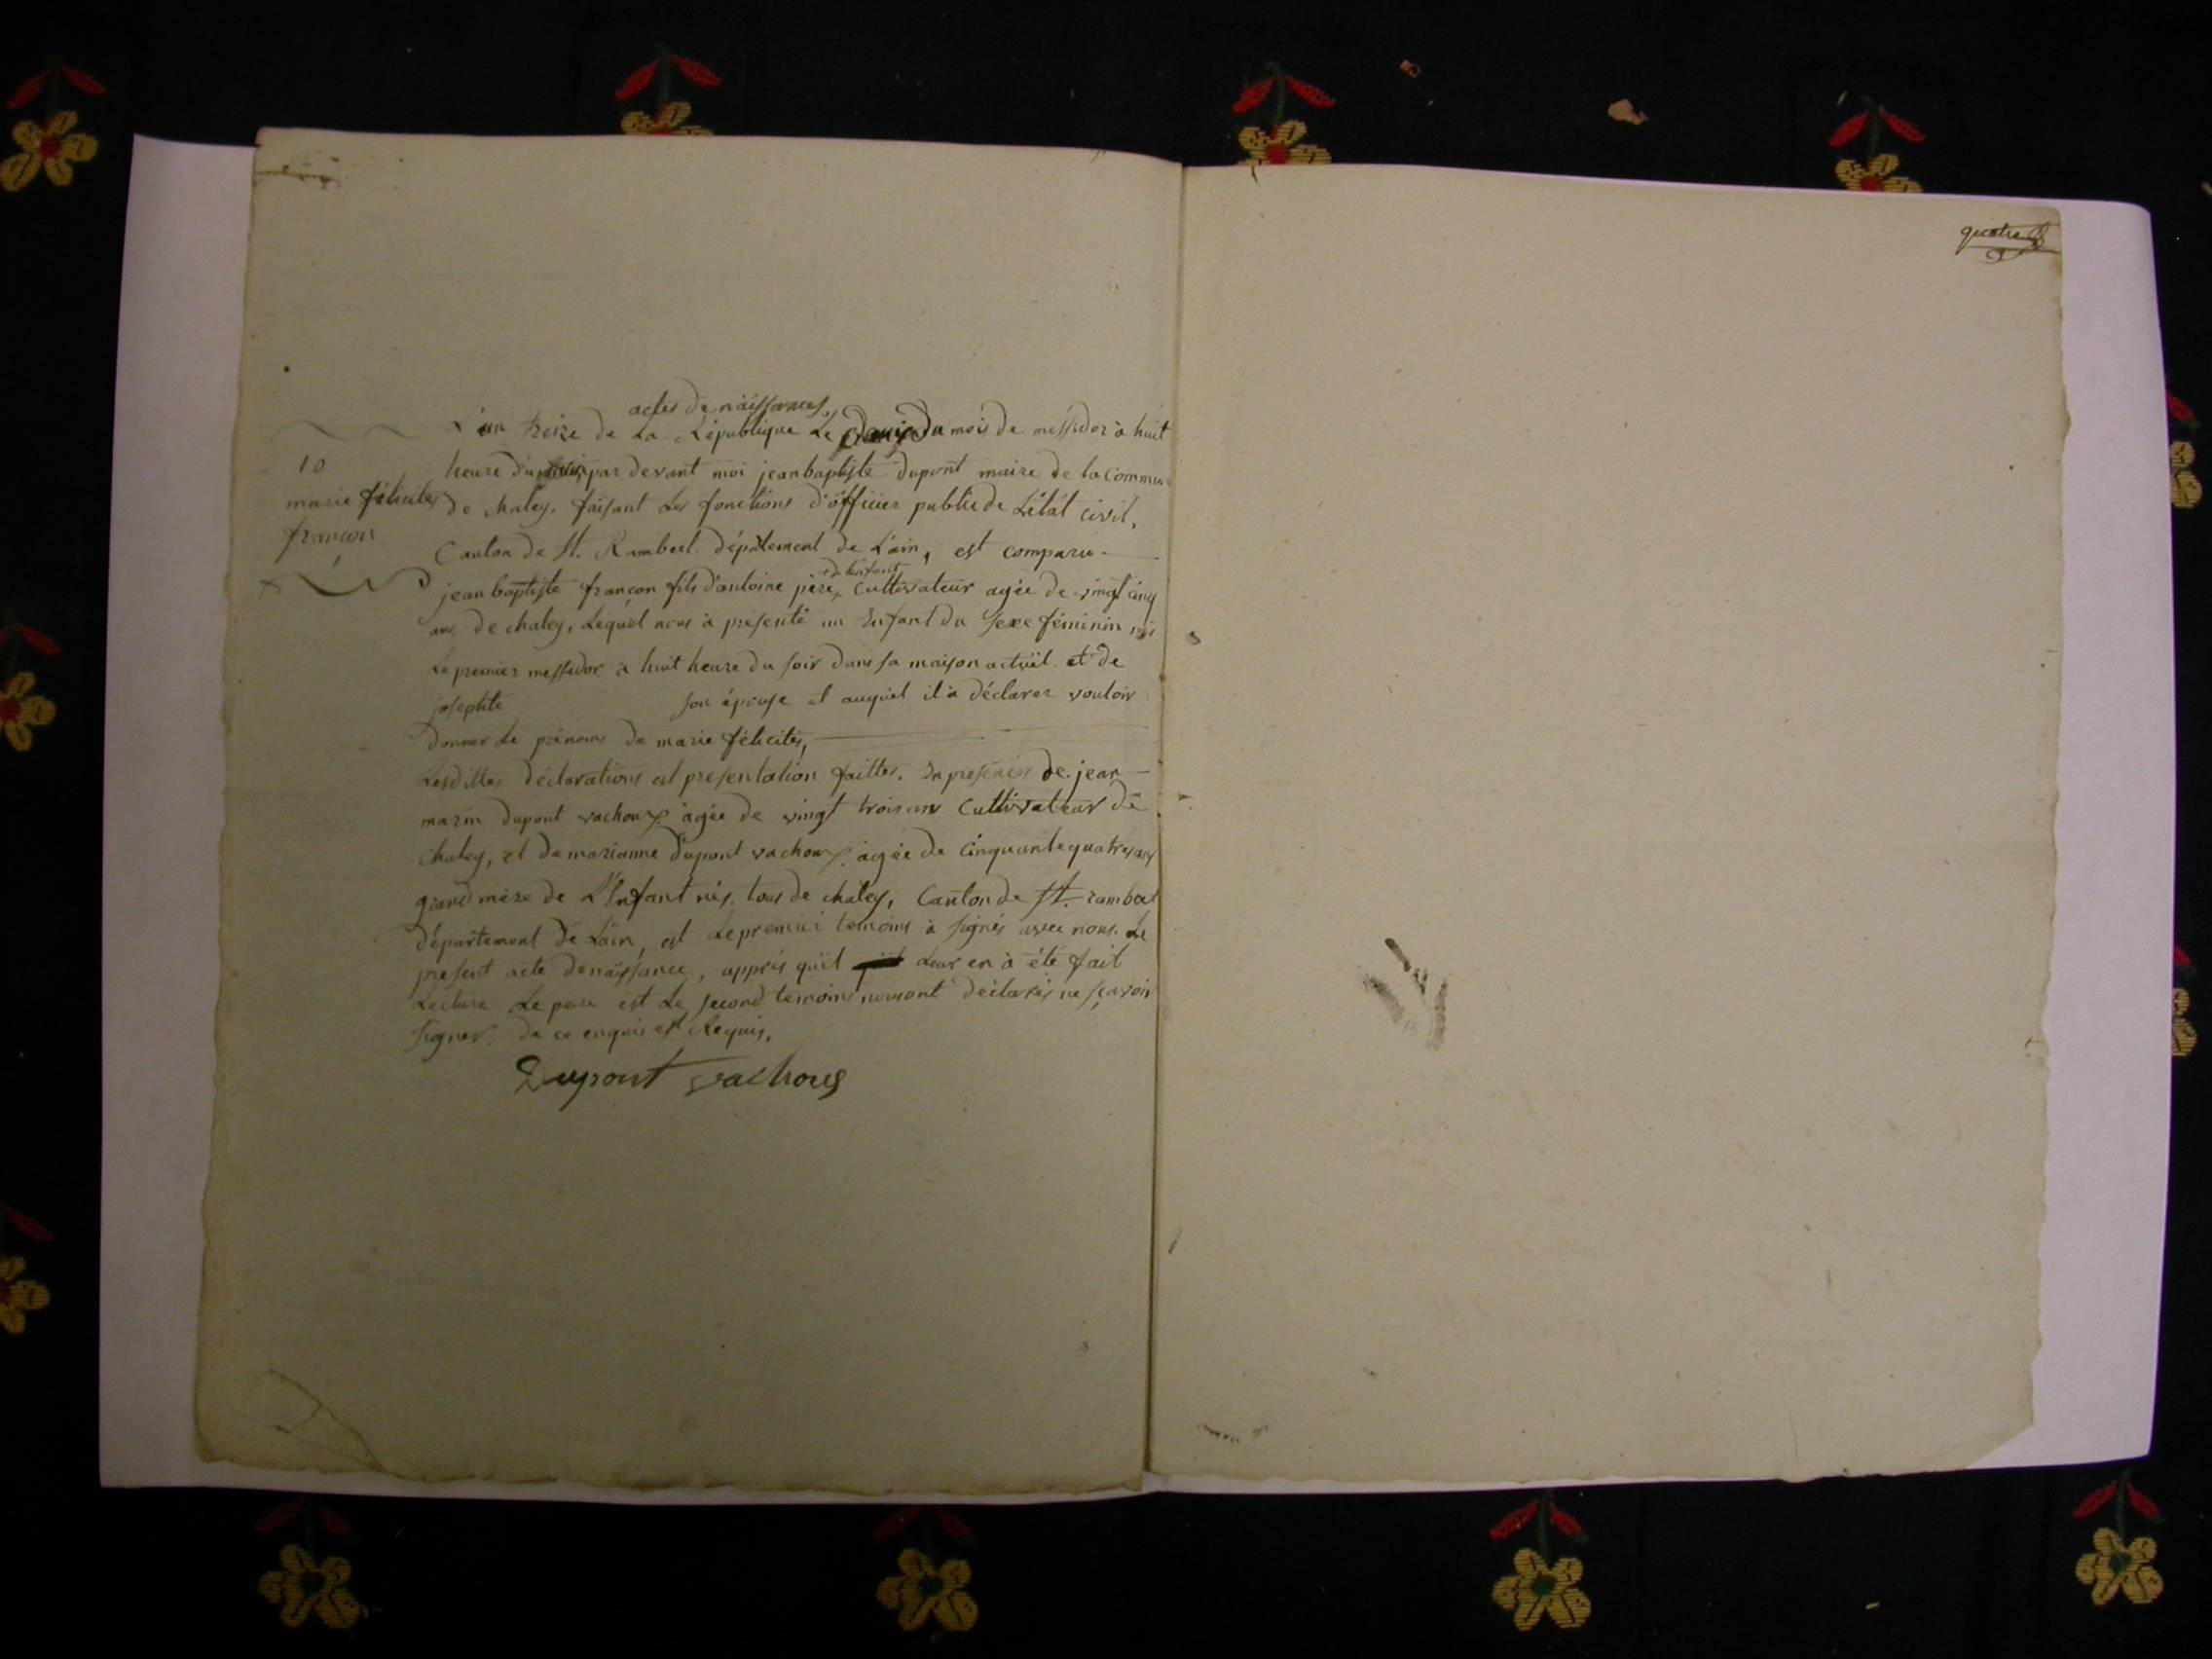 quatre
actes de naissances
L'an treize de La République Le deux du mois de messidor à huit
10
heure du matin, par devant moi jean baptiste dupont maire de la Commu
marie félicites
de chaley. faisant Les fonctions d'officier public de L'état civil,
françon
Canton de St. Rambert. dépatement de L'ain, est comparu
de l'enfant
jean baptiste françon fils d'antoine père, Cultivateur agée de vingt cinq
ans de chaley, Lequel nous à présenté un Enfant du sexe féminin nés
Le premier messidor à huit heure du soir dans sa maison actuël. et de
josephte son épouse et auquel il à déclarer vouloir
donner Le prénoms de marie félicites,
Lesdittes déclarations et présentation faittes. En présences de jean
marin dupont vachoux agée de vingt trois ans Cultivateur de
chaley, et de marianne dupont vachoux agée de Cinquante quatres ans
grand mère de L'Enfant nés. tous de chaley, Canton de St. rambert
département de L'ain, et Le premier temoins à signés avec nous. Le
present acte de naissance, apprés qu'il Leur en à été fait
Lecture Le pere est Le second temoins nousont déclarés ne sçavoir
signer. de ce enquis est Requis,
Dupont vachoux